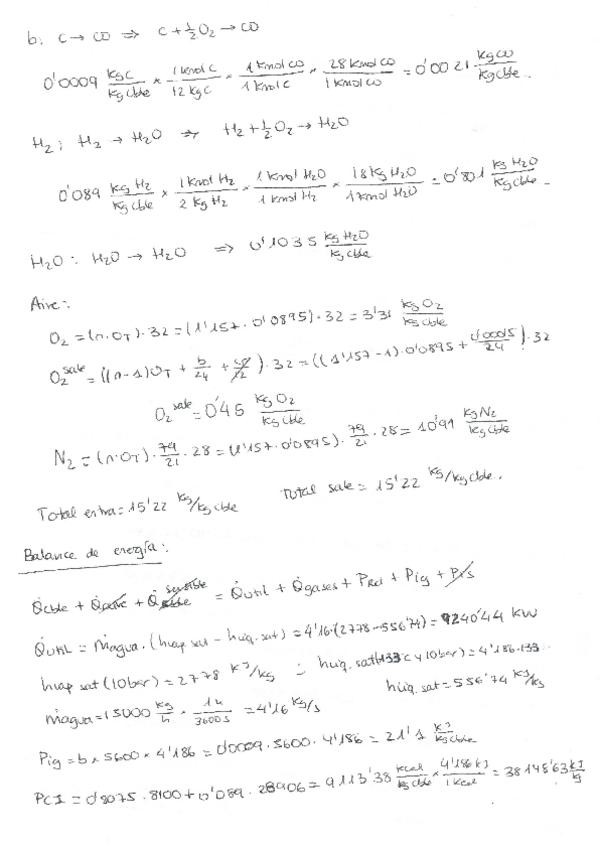 b: C → CO ⇒ C + 1/2 O2 → CO
0'0009 KgC/Kg cble × 1 Kmol C/12 KgC × 1 Kmol CO/1 Kmol C × 28 Kmol CO/1 Kmol CO = 0'0021 Kg CO/Kg cble.
H2: H2 → H2O ⇒ H2 + 1/2 O2 → H2O
0'089 Kg H2/Kg cble × 1 Kmol H2/2 Kg H2 × 1 Kmol H2O/1 Kmol H2 × 18 Kg H2O/1 Kmol H2O = 0'801 Kg H2O/Kg cble.
H2O: H2O → H2O ⇒ 0'1035 Kg H2O/Kg cble
Aire:
O2 = (n·OT)·32 = (1'157·0'0895)·32 = 3'31 Kg O2/Kg cble
O2 sale = ((n-1)OT + b/24 + /12)·32 = ((1'157-1)·0'0895 + /24)·32
O2 sale = 0'45 Kg O2/Kg cble
N2 = (n·OT)·79/21·28 = (1'157·0'0895)·79/21·28 = 10'91 Kg N2/Kg cble
Total entra = 15'22 Kg/Kg cble Total sale = 15'22 Kg/Kg cble.
Balance de energía:
Q̇cble + Q̇aire + Q̇ sensible = Q̇util + Q̇gases + Prad + Pig + Pis
Q̇util = ṁagua·(hvap sat - hliq. sat) = 4'16·(2778-556'74) = 9240'44 KW
hvap sat (10bar) = 2778 KJ/Kg hliq. sat (133 C y 10bar) = 4'186·133
ṁagua = 15000 Kg/h × 1h/3600s = 4'16 Kg/s hliq. sat = 556'74 KJ/Kg
Pig = b × 5600 × 4'186 = 0'0009·5600·4'186 = 21'1 KJ/Kg cble
PCI = 0'8075·8100 + 0'089·28906 = 9113'38 Kcal/Kg cble × 4'186 KJ/1 Kcal = 38148'63 KJ/Kg